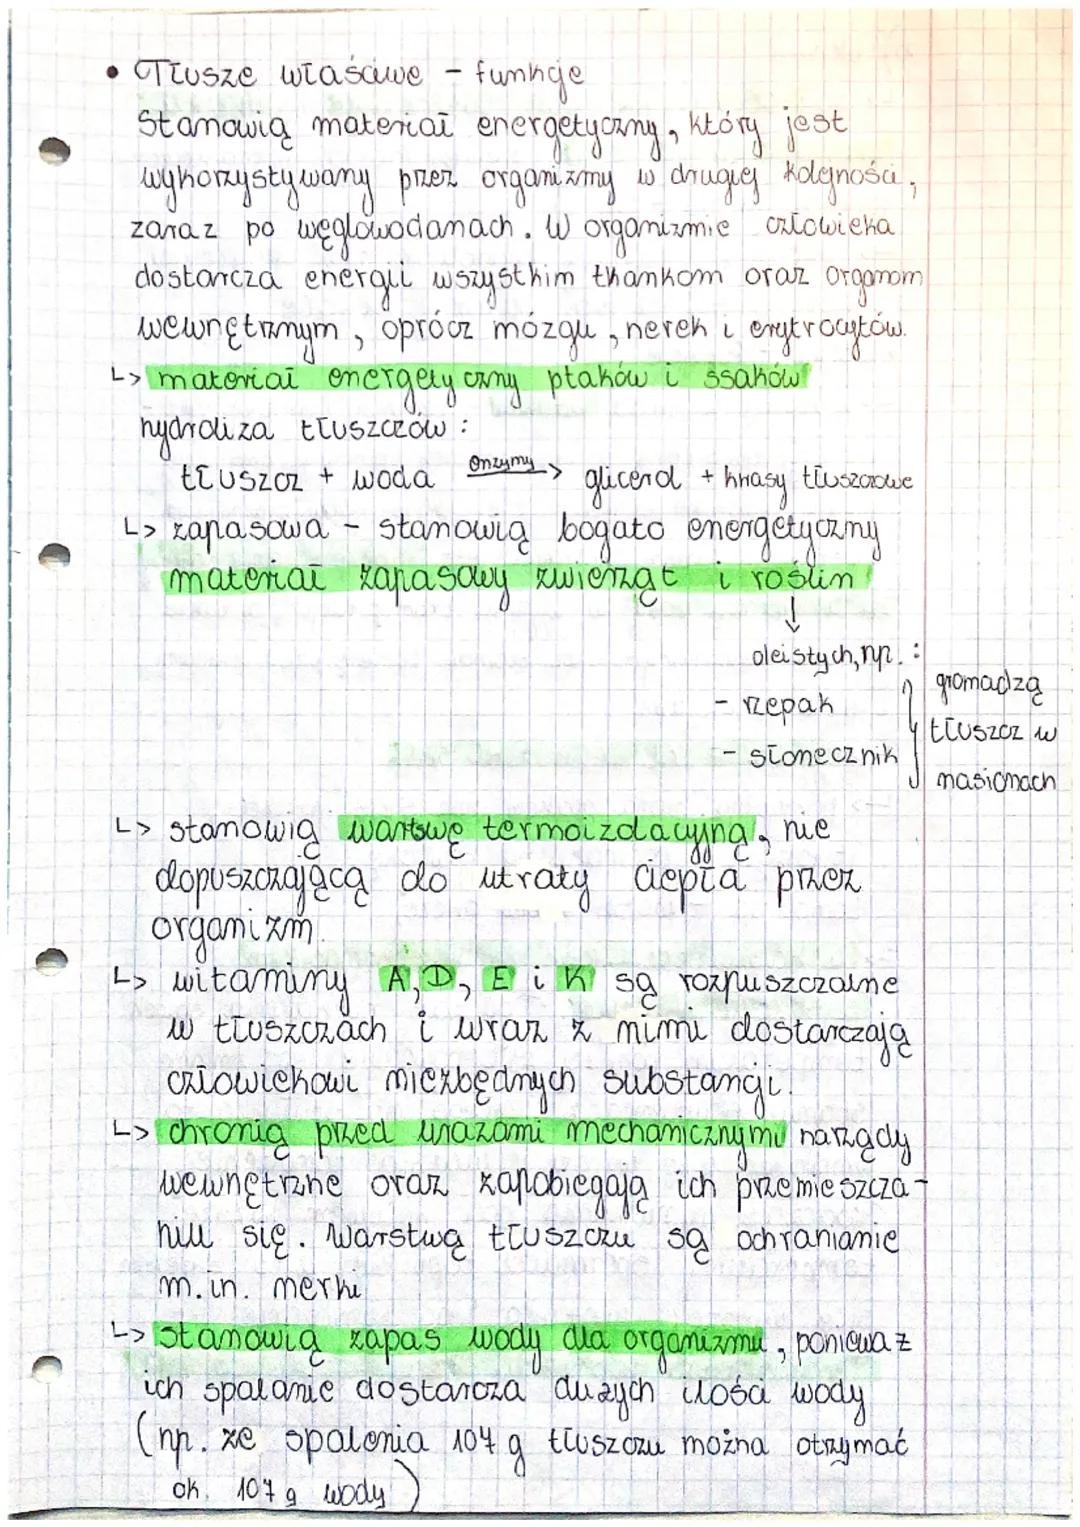 • Tłusze właściwe - funkcje
Stanowią materiał energetyczny, który jest
wykorzystywany przez organizmy w drugiej kolejności,
zaraz po węglowodanach. W organizmie człowieka
dostarcza energii wszystkim tkankom oraz organom
wewnętrznym, oprócz mózgu, nerek i erytrocytów.
↳ materiał energetyczny ptaków i ssaków
hydroliza tłuszczów:
tłuszcz + woda enzymy → glicerol + kwasy tłuszczowe
↳ zapasowa - stanowią bogato energetyczny
materiał zapasowy zwierząt i roślin
↓
oleistych, np.:
- rzepak
- słonecznik
} gromadzą
tłuszcz w
nasionach
↳ stanowią warstwę termoizolacyjną, nie
dopuszczającą do utraty ciepła przez
organizm.
↳ witaminy A, D, E i K są rozpuszczalne
w tłuszczach i wraz z nimi dostarczają
człowiekowi niezbędnych substancji.
↳ chronią przed urazami mechanicznymi narządy
wewnętrzne oraz zapobiegają ich przemieszcza-
niu się. Warstwą tłuszczu są ochranianie
m.in. nerki
↳ Stanowią zapas wody dla organizmu, ponieważ
ich spalanie dostarcza dużych ilości wody
(np. ze spalenia 104 g tłuszczu można otrzymać
ok. 107 g wody)